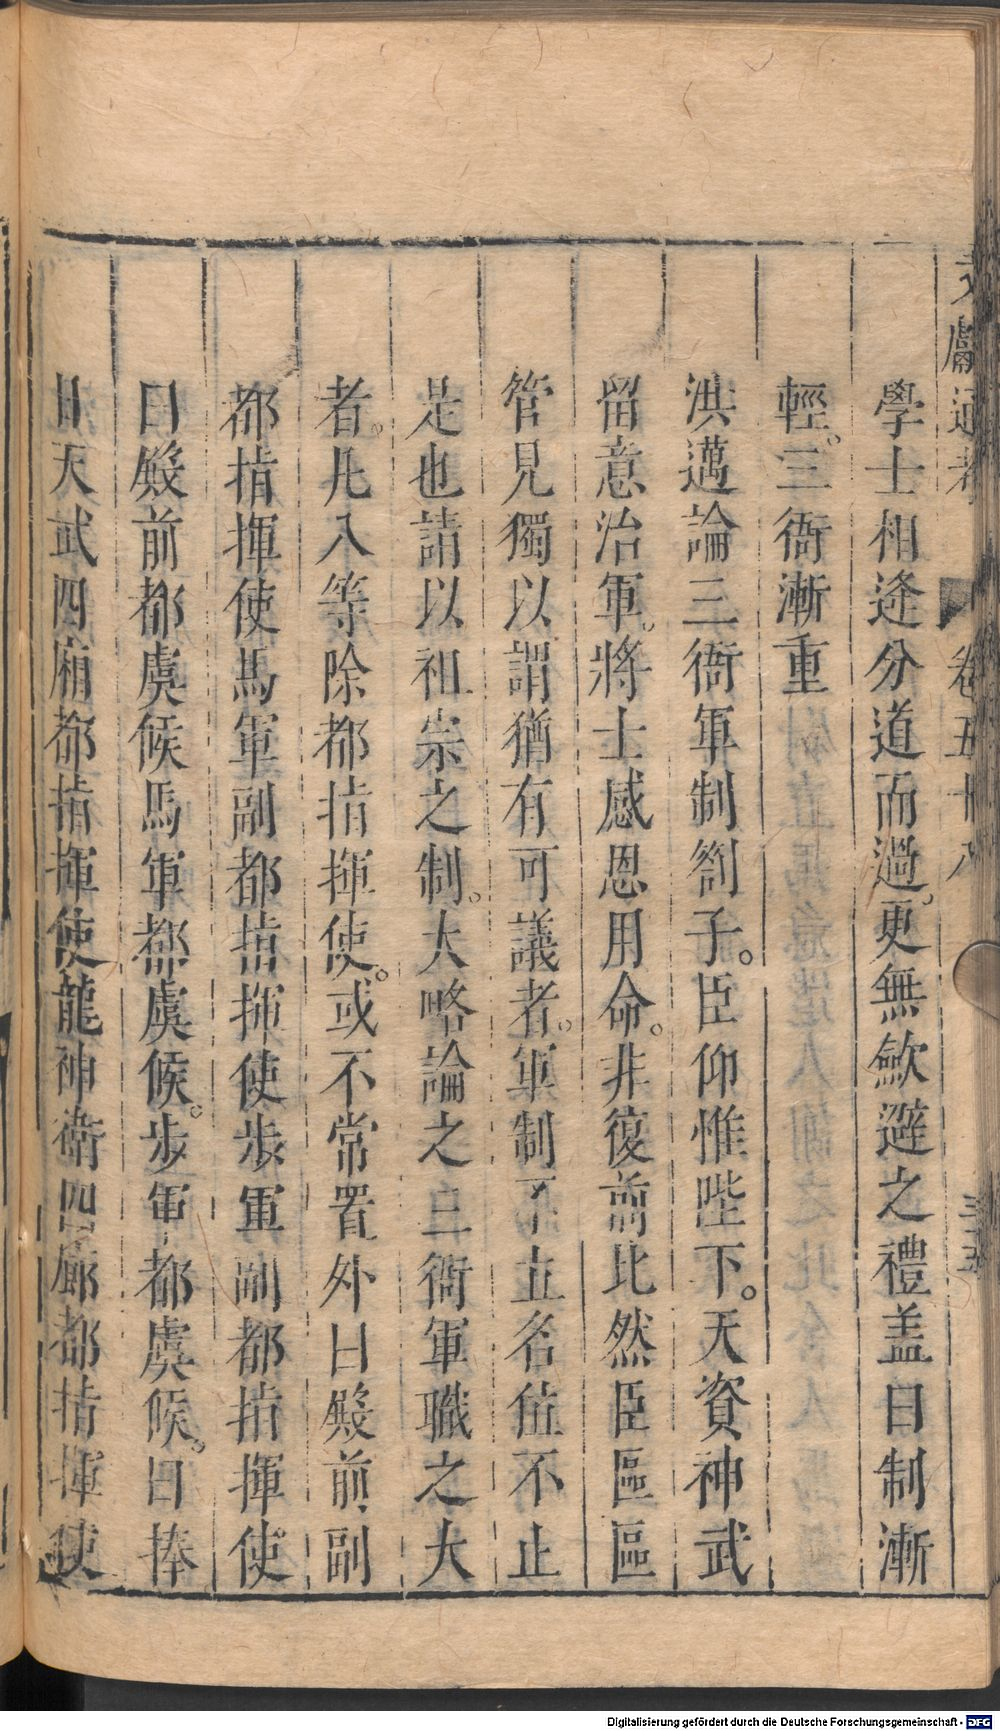 文獻通考 卷五十八 三十五
學士相逢分道而過。更無歛避之禮盖日制漸
輕。三衙漸重
洪邁論三衙軍制劄子。臣仰惟陛下。天資神武
留意治軍。將士感恩用命。非復前比然臣區區
管見獨以謂猶有可議者。軍制不立名位不止
是也請以祖宗之制。大略論之三衙軍職之大
者。凡入等除都指揮使。或不常置外曰殿前副
都指揮使馬軍副都指揮使步軍副都指揮使
曰殿前都虞候馬軍都虞候。步軍都虞候。曰捧
日天武四廂都指揮使龍神衛四廊都指揮使
Digitalisierung gefördert durch die Deutsche Forschungsgemeinschaft - DFG